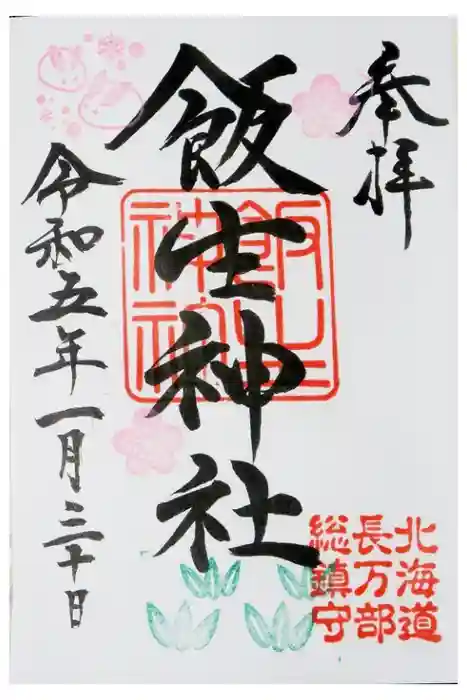 奉拝
飯生神社
飯生
神社
令和五年一月三十日
北海道
長万部
総鎮守